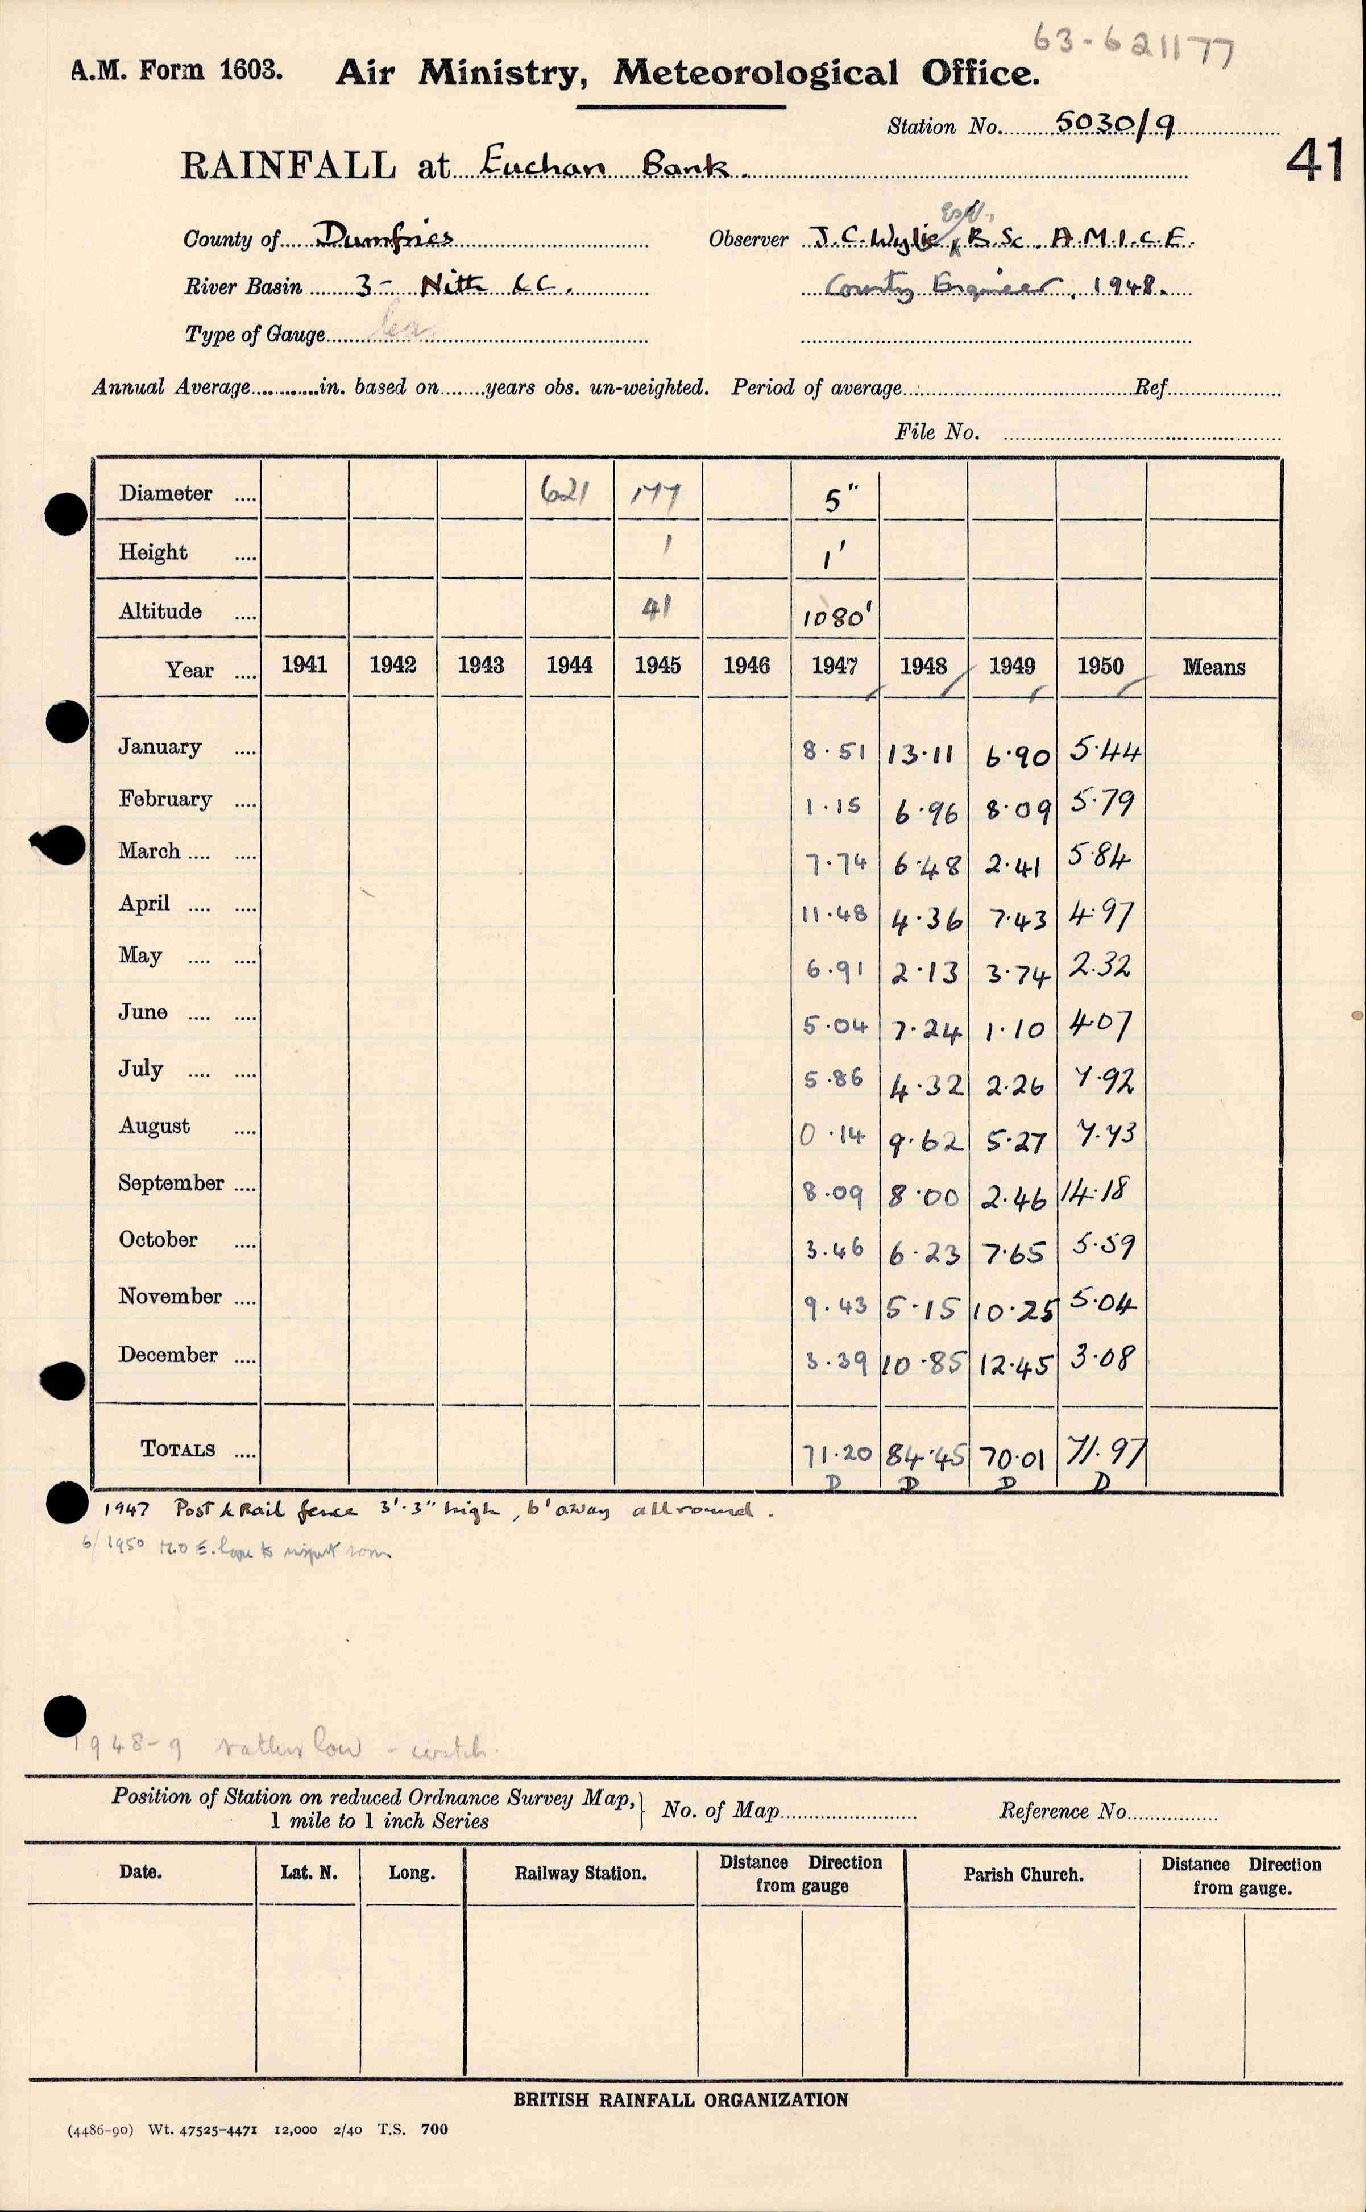 63-621177
A.M. Form 1603. Air Ministry, Meteorological Office.
Station No. 5030/9
41
RAINFALL at Euchan Bank.
Esq.,
County of Dumfries Observer J.C. Wylie, B.Sc. A.M.I.C.E.
River Basin 3- Nith &c. County Engineer, 1948.
Type of Gauge
Annual Average in. based on years obs. un-weighted. Period of average Ref
File No.
Diameter 621 177 5"
Height 1 1'
Altitude 41 1080'
Year 1941 1942 1943 1944 1945 1946 1947 1948 1949 1950 Means
January 8.51 13.11 6.90 5.44
February 1.15 6.96 8.09 5.79
March 7.74 6.48 2.41 5.84
April 11.48 4.36 7.43 4.97
May 6.91 2.13 3.74 2.32
June 5.04 7.24 1.10 4.07
July 5.86 4.32 2.26 7.92
August 0.14 9.62 5.27 7.73
September 8.09 8.00 2.46 14.18
October 3.46 6.23 7.65 5.59
November 9.43 5.15 10.25 5.04
December 3.39 10.85 12.45 3.08
TOTALS 71.20 84.45 70.01 71.97
D D D D
1947 Post & Rail fence 3'.3" high, 6' away all round.
6/1950 M.O E. hope to inspect soon
1948-9 rather low - watch.
Position of Station on reduced Ordnance Survey Map, 1 mile to 1 inch Series } No. of Map Reference No.
Date. Lat. N. Long. Railway Station. Distance Direction from gauge Parish Church. Distance Direction from gauge.
BRITISH RAINFALL ORGANIZATION
(4486-90) Wt. 47525-4471 12,000 2/40 T.S. 700